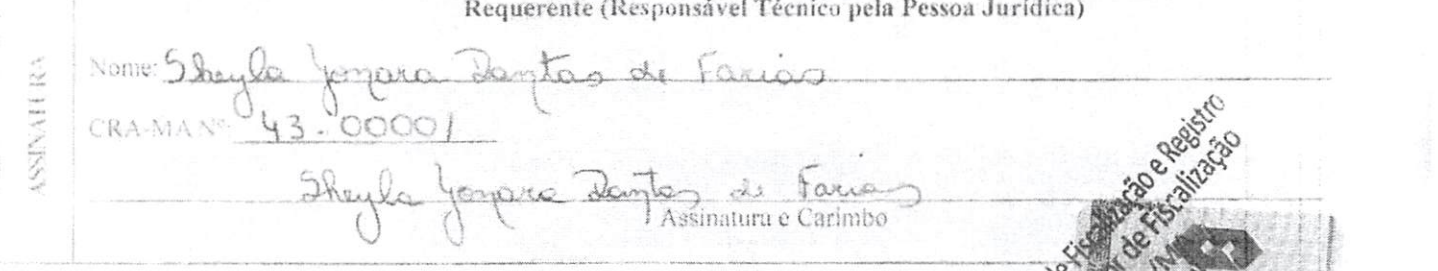 Requerente (Responsável Técnico pela Pessoa Jurídica)
ASSINATURA
Nome: Sheyla Yonara Dantas de Farias
CRA-MA Nº 43.00001
Sheyla Yonara Dantas de Farias
Assinatura e Carimbo
de Fiscalização e Registro
de Fiscalização